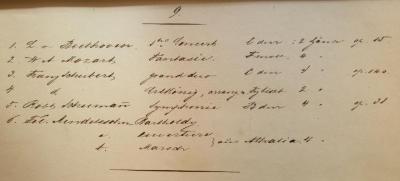 9.
1. L. v. Beethoven, 1tes Concert C dur : 2 händ op. 15
2. W. A. Mozart, Fantasie F moll 4 "
3. Franz Schubert, grand duo C dur 4 " op. 140.
4 d Erlkönig, arrang. v. Liszt 2 "
5. Rob. Schumann Symphonie B dur 4 " op. 38
6. Fel. Mendelssohn Bartholdy
a. ouverture
b. Marsch } aus Athalia 4 "